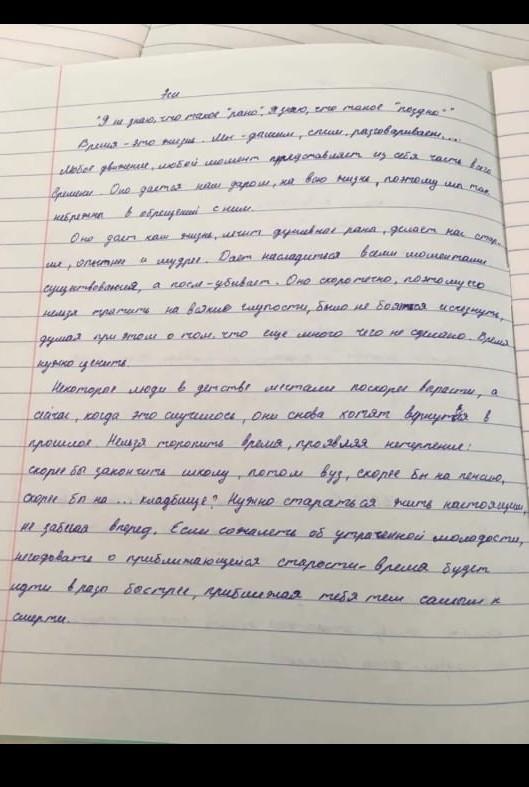 Эссе
"Я не знаю, что такое "рано", Я знаю, что такое "поздно""
Время - это жизнь. Мы - дышим, спим, разговариваем...
Любое движение, любой момент представляет из себя часть всего
времени. Оно дается нам даром, на всю жизнь, поэтому мы так
небрежны в обращении с ним.
Оно дает нам жизнь, лечит душевные раны, делает нас стар-
ше, опытнее и мудрее. Дает насладиться всеми моментами
существования, а после - убивает. Оно скоротечно, поэтому его
нельзя тратить на всякие глупости, было не бояться исчезнуть,
думая при этом о том, что еще много чего не сделано. Время
нужно ценить.
Некоторые люди в детстве мечтали поскорее вырасти, а
сейчас, когда это случилось, они снова хотят вернуться в
прошлое. Нельзя торопить время, проявляя нетерпение:
скорее бы закончить школу, потом вуз, скорее бы на пенсию,
скорее бы на ... кладбище? Нужно стараться жить настоящим,
не забегая вперед. Если сожалеть об утраченной молодости,
негодовать о приближающейся старости - время будет
идти в разы быстрее, приближая тебя тем самым к
смерти.